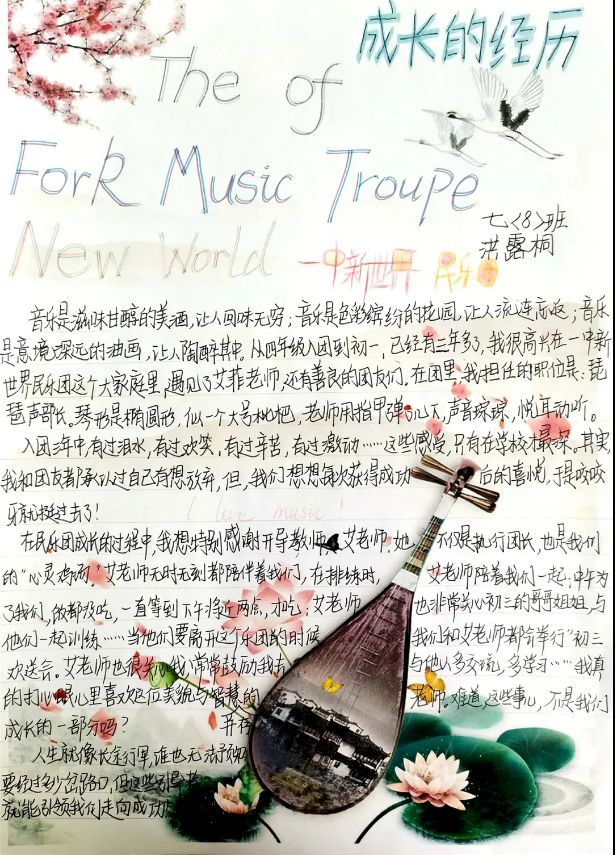 成长的经历
The of
Fork Music Troupe
New World
一中新世界 民乐团
七<8>班
洪露桐
音乐是滋味甘醇的美酒,让人回味无穷;音乐是色彩缤纷的花园,让人流连忘返;音乐
是意境深远的油画,让人陶醉其中。从四年级入团到初一,已经有三年多了,我很高兴在一中新
世界民乐团这个大家庭里,遇见了艾菲老师,还有善良的团友们。在团里,我担任的职位是:琵
琶声部长。琴形是椭圆形,似一个大号枇杷,老师用指甲弹几下,声音琼琼,悦耳动听。
入团三年中,有过泪水,有过欢笑,有过辛苦,有过激动……这些感受,只有在学校才最深。其实,
我和团友都承认过自己有想放弃,但,我们想想每次获得成功 后的喜悦,于是咬咬
牙就挺过去了!
I love music!
在民乐团成长的过程中,我想特别感谢开导教师 艾老师。她 不仅是执行团长,也是我们
的“心灵鸡汤”。艾老师无时无刻都陪伴着我们,在排练时, 艾老师陪着我们一起;中午为
了我们,饭都没吃,一直等到下午将近两点,才吃;艾老师 也非常关心初三的哥哥姐姐,与
他们一起训练……当他们要离开这个乐团的时候 我们和艾老师都会举行“初三
欢送会。艾老师也很关心我,常常鼓励我去 与他人多交流,多学习……我真
的打心眼儿里喜欢这位美貌与智慧的 老师。难道,这些事儿,不是我们
成长的一部分吗? 并存
人生就像长途行军,谁也无法预知
要经过多少岔路口,但这些引导者
就能引领我们走向成功!